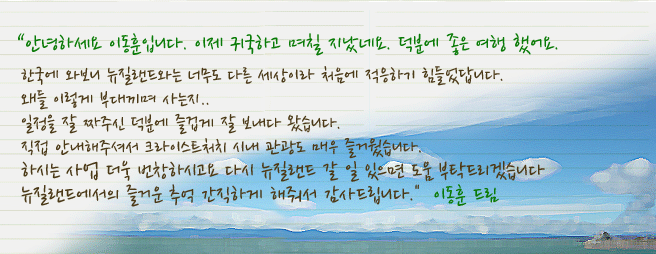 “안녕하세요 이동훈입니다. 이제 귀국하고 며칠 지났네요. 덕분에 좋은 여행 했어요.
한국에 와보니 뉴질랜드와는 너무도 다른 세상이라 처음에 적응하기 힘들었답니다.
왜들 이렇게 부대끼며 사는지..
일정을 잘 짜주신 덕분에 즐겁게 잘 보내다 왔습니다.
직접 안내해주셔서 크라이스트처치 시내 관광도 매우 즐거웠습니다.
하시는 사업 더욱 번창하시고요 다시 뉴질랜드 갈 일 있으면 도움 부탁드리겠습니다
뉴질랜드에서의 즐거운 추억 간직하게 해줘서 감사드립니다.” 이동훈 드림